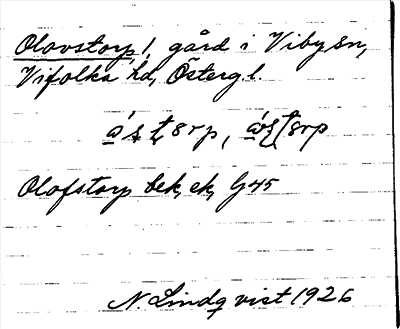 Olovstorp, 1, gård i Viby sn,
Vifolka hd, Österg. l.
Olofstorp bek, ek, G45
N. Lindqvist 1926